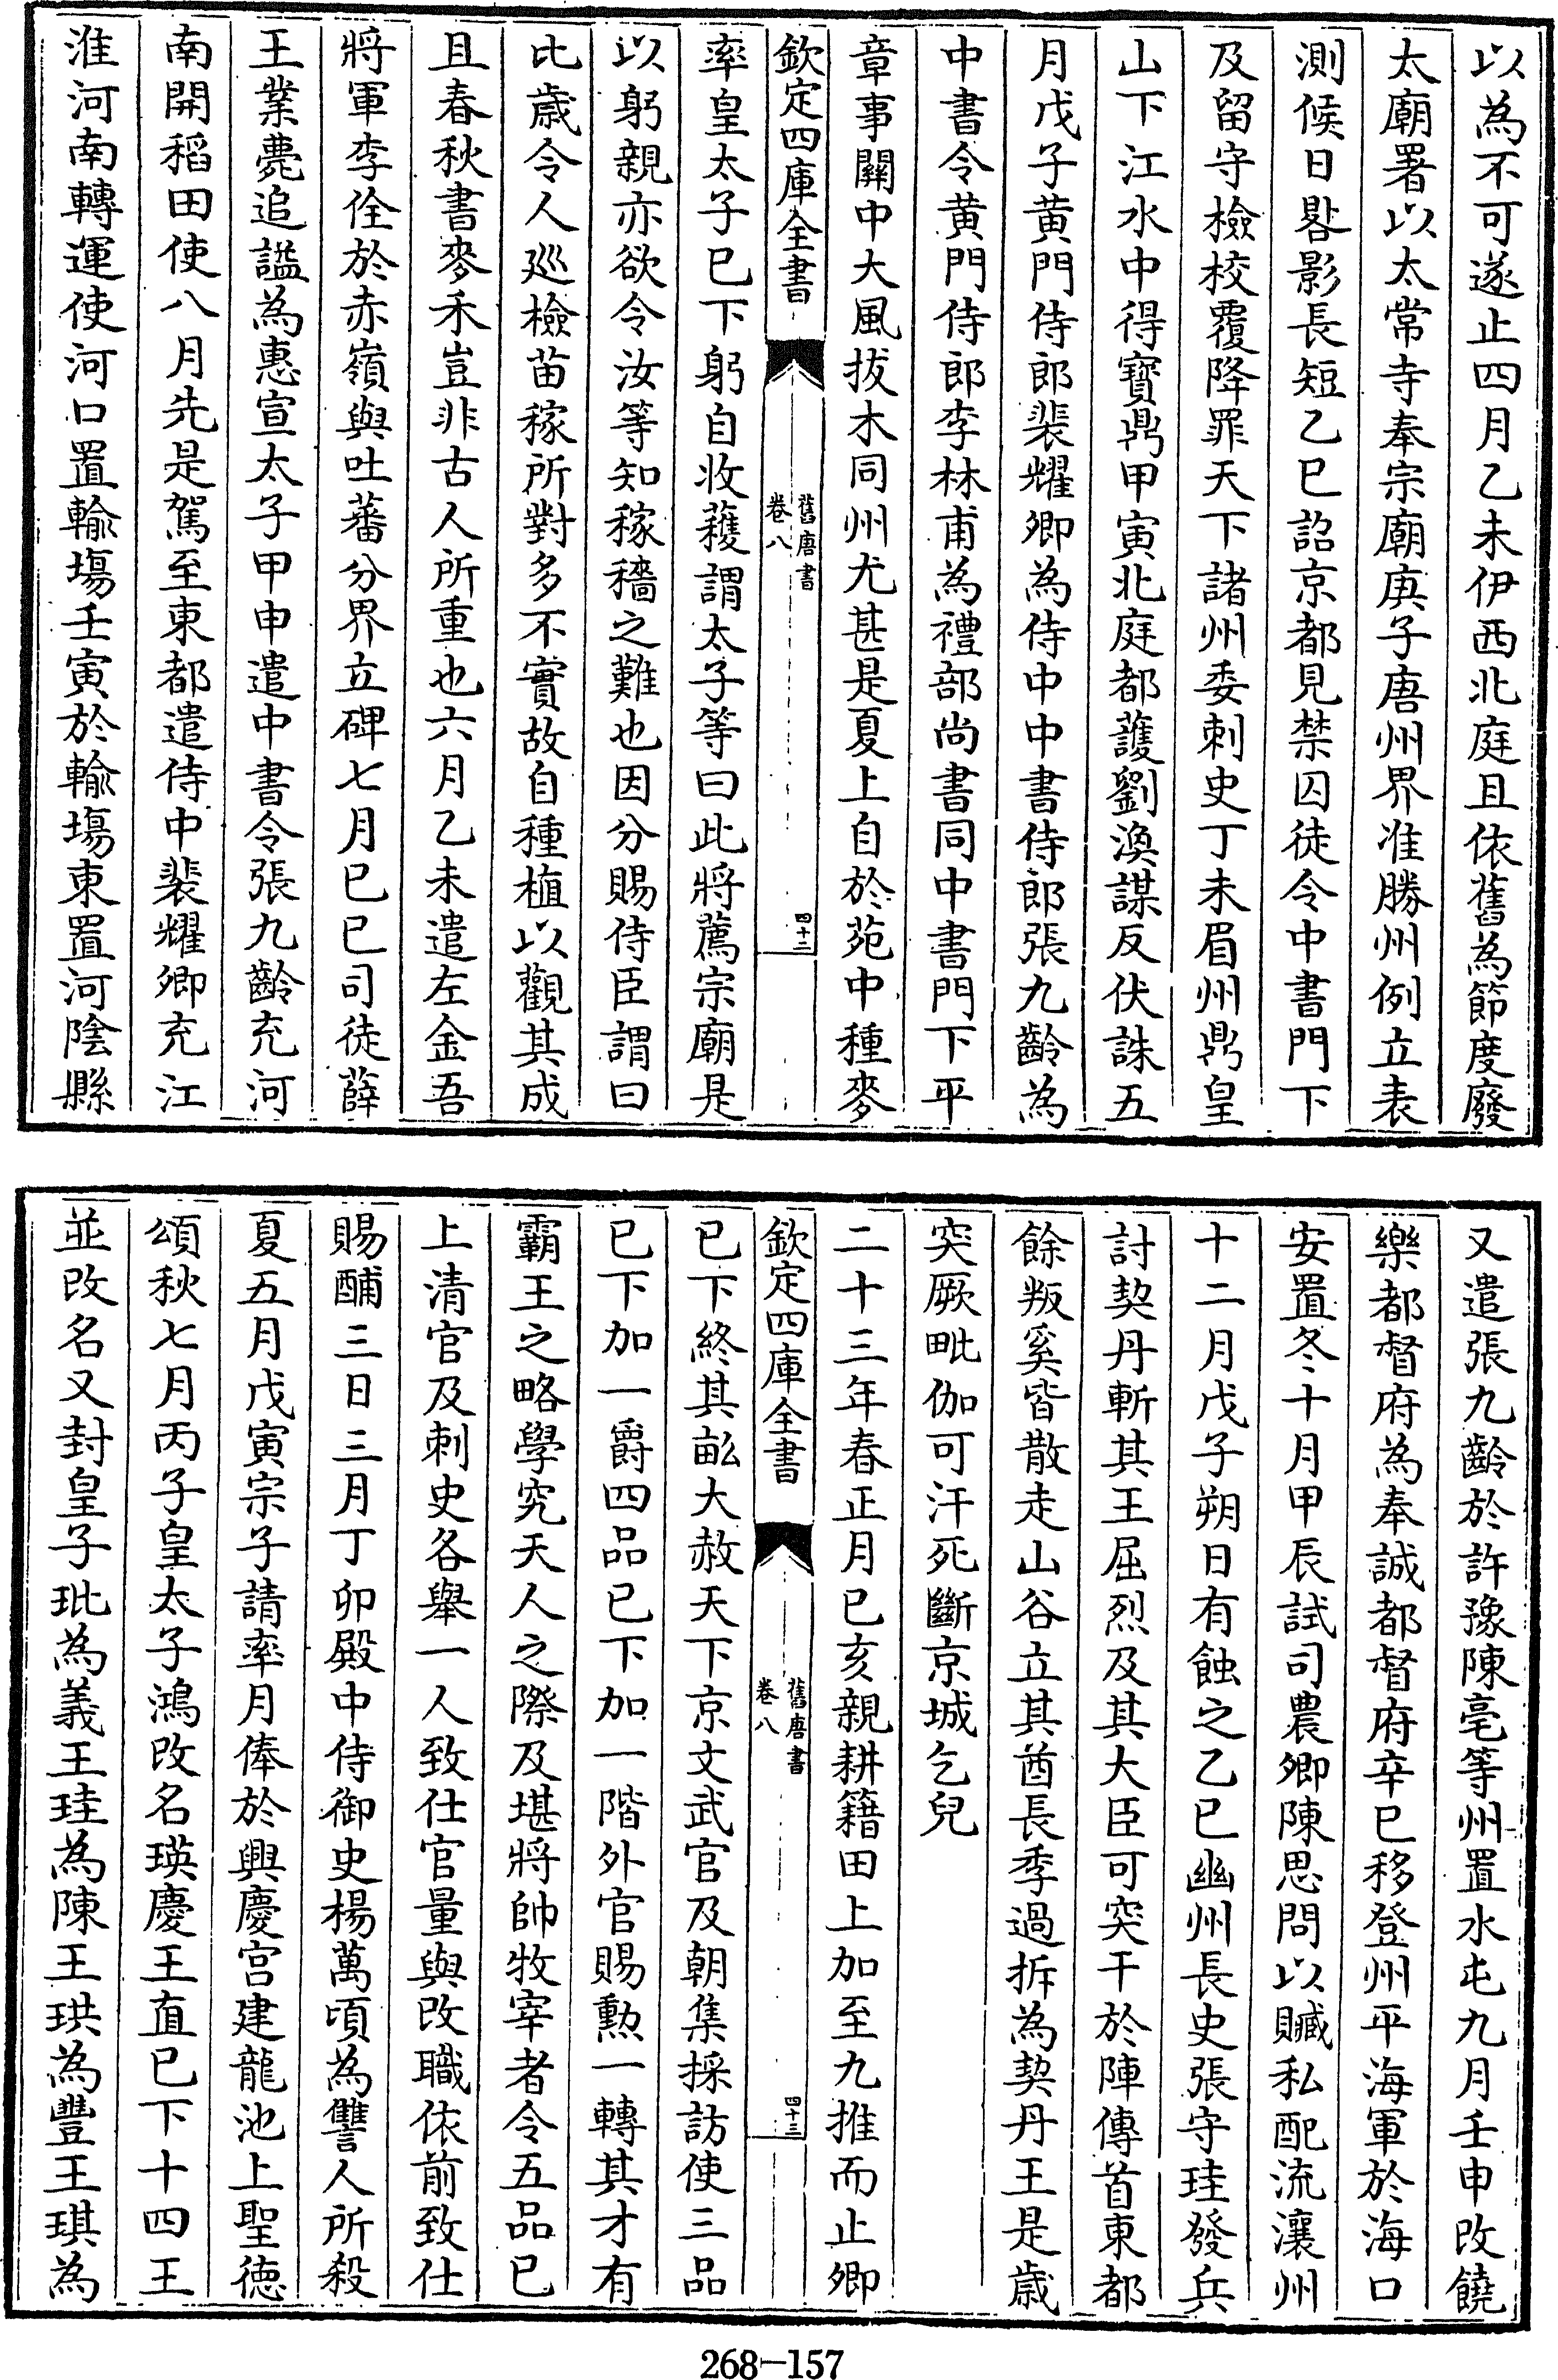 以為不可遂止四月乙未伊西北庭且依舊為節度廢
太廟署以太常寺奉宗廟庚子唐州界准勝州例立表
測候日晷影長短乙巳詔京都見禁囚徒令中書門下
及留守檢校覆降罪天下諸州委刺史丁未眉州鼎皇
山下江水中得寶鼎甲寅北庭都護劉渙謀反伏誅五
月戊子黄門侍郎裴耀卿為侍中中書侍郎張九齡為
中書令黄門侍郎李林甫為禮部尚書同中書門下平
章事關中大風拔木同州尤甚是夏上自於苑中種麥
欽定四庫全書
舊唐書
卷八
四十二
率皇太子已下躬自收穫謂太子等曰此將薦宗廟是
以躬親亦欲令汝等知稼穡之難也因分賜侍臣謂曰
比歲令人廵檢苗稼所對多不實故自種植以觀其成
且春秋書麥禾豈非古人所重也六月乙未遣左金吾
將軍李佺於赤嶺與吐蕃分界立碑七月已巳司徒薛
王業薨追謚為惠宣太子甲申遣中書令張九齡充河
南開稻田使八月先是駕至東都遣侍中裴耀卿充江
淮河南轉運使河口置輸塲壬寅於輸塲東置河陰縣
又遣張九齡於許豫陳亳等州置水屯九月壬申改饒
樂都督府為奉誠都督府辛巳移登州平海軍於海口
安置冬十月甲辰試司農卿陳思問以贓私配流瀼州
十二月戊子朔日有蝕之乙巳幽州長史張守珪發兵
討契丹斬其王屈烈及其大臣可突干於陣傳首東都
餘叛奚皆散走山谷立其酋長李過折為契丹王是歲
突厥毗伽可汗死斷京城乞兒
二十三年春正月已亥親耕籍田上加至九推而止卿
欽定四庫全書
舊唐書
卷八
四十三
已下終其畝大赦天下京文武官及朝集採訪使三品
已下加一爵四品已下加一階外官賜勲一轉其才有
霸王之略學究天人之際及堪將帥牧宰者令五品已
上清官及刺史各舉一人致仕官量與改職依前致仕
賜酺三日三月丁卯殿中侍御史楊萬頃為讐人所殺
夏五月戊寅宗子請率月俸於興慶宮建龍池上聖德
頌秋七月丙子皇太子鴻改名瑛慶王直已下十四王
並改名又封皇子玭為義王珪為陳王珙為豐王琪為
268-157